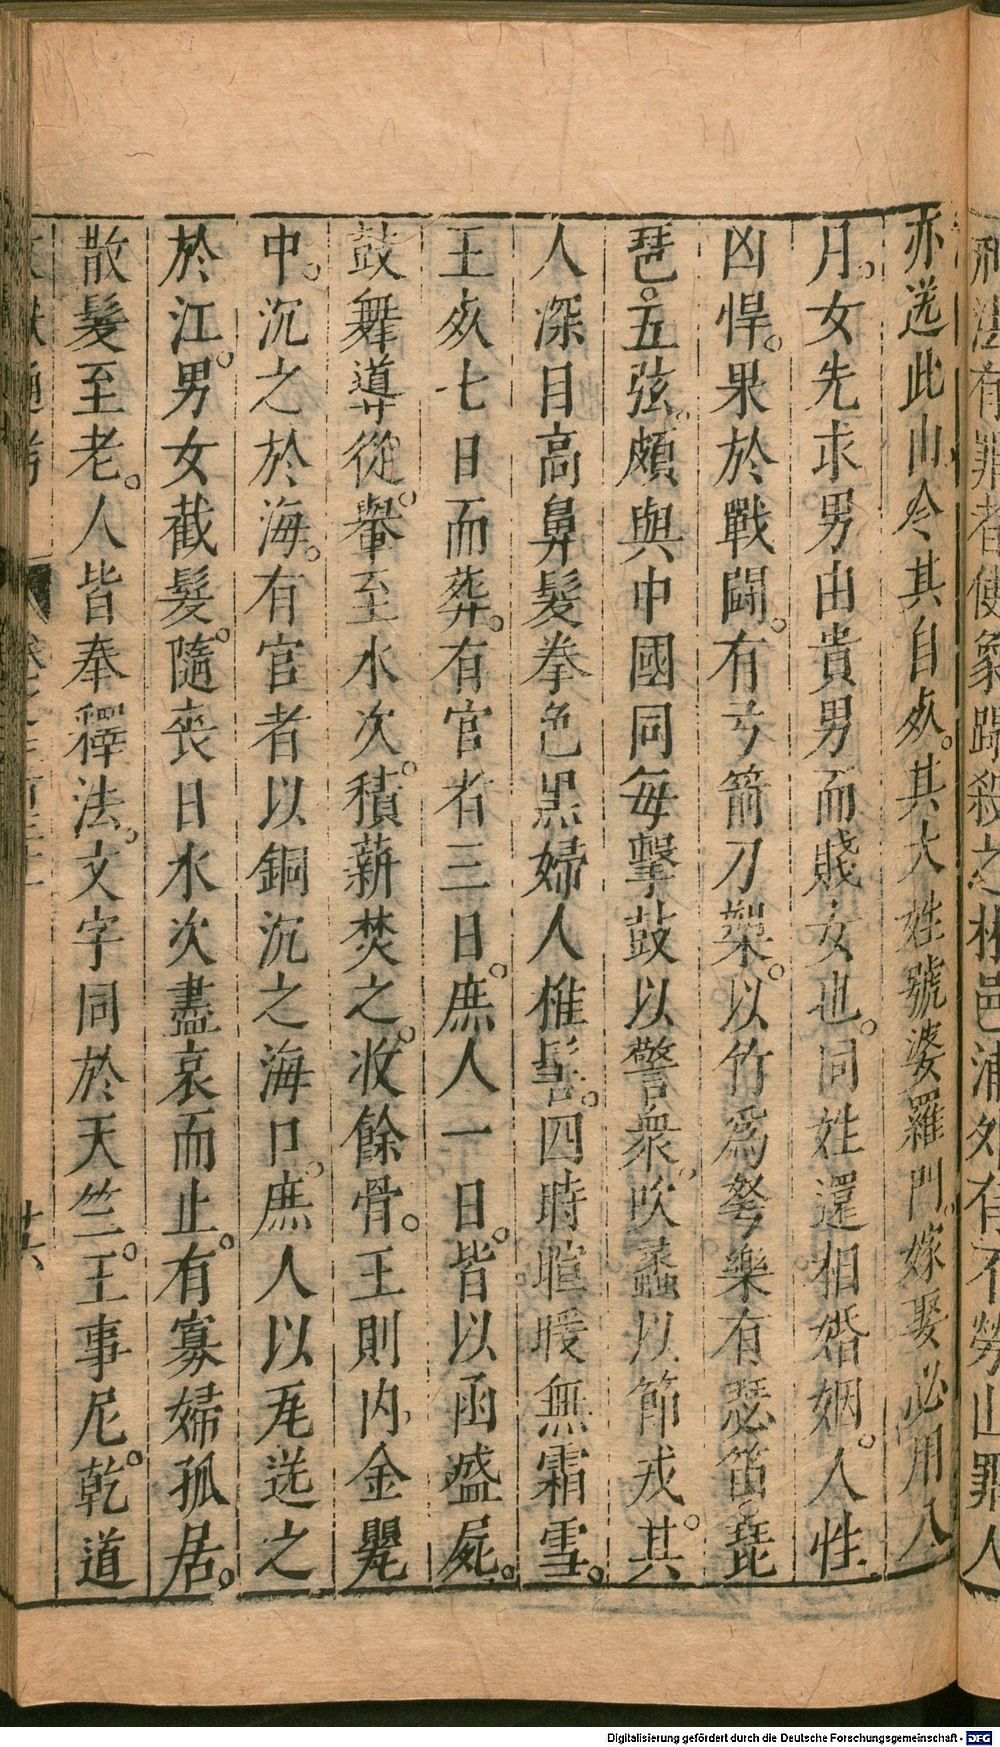 刑法有罪者使象蹋殺之林邑浦外有不勞山罪人
亦送此山令其自死。其大姓號婆羅門。嫁娶必用八
月。女先求男由貴男而賤女也。同姓還相婚姻。人性
凶悍。果於戰鬭。有弓箭刀槊。以竹爲弩樂有瑟笛琵
琶。五弦。頗與中國同每擊鼓以警衆。吹蠡以節戎。其
人深目高鼻髮拳色黑婦人椎髻。四時暄暖無霜雪。
王死七日而葬。有官者三日。庶人一日。皆以函盛屍。
鼓舞導從。轝至水次。積薪焚之。收餘骨。王則内金甖
中。沉之於海。有官者以銅沉之海口。庶人以瓦送之
於江。男女截髮。隨喪日水次盡哀而止。有寡婦孤居。
散髮至老。人皆奉釋法。文字同於天竺。王事尼乾道
十六
Digitalisierung gefördert durch die Deutsche Forschungsgemeinschaft - DFG